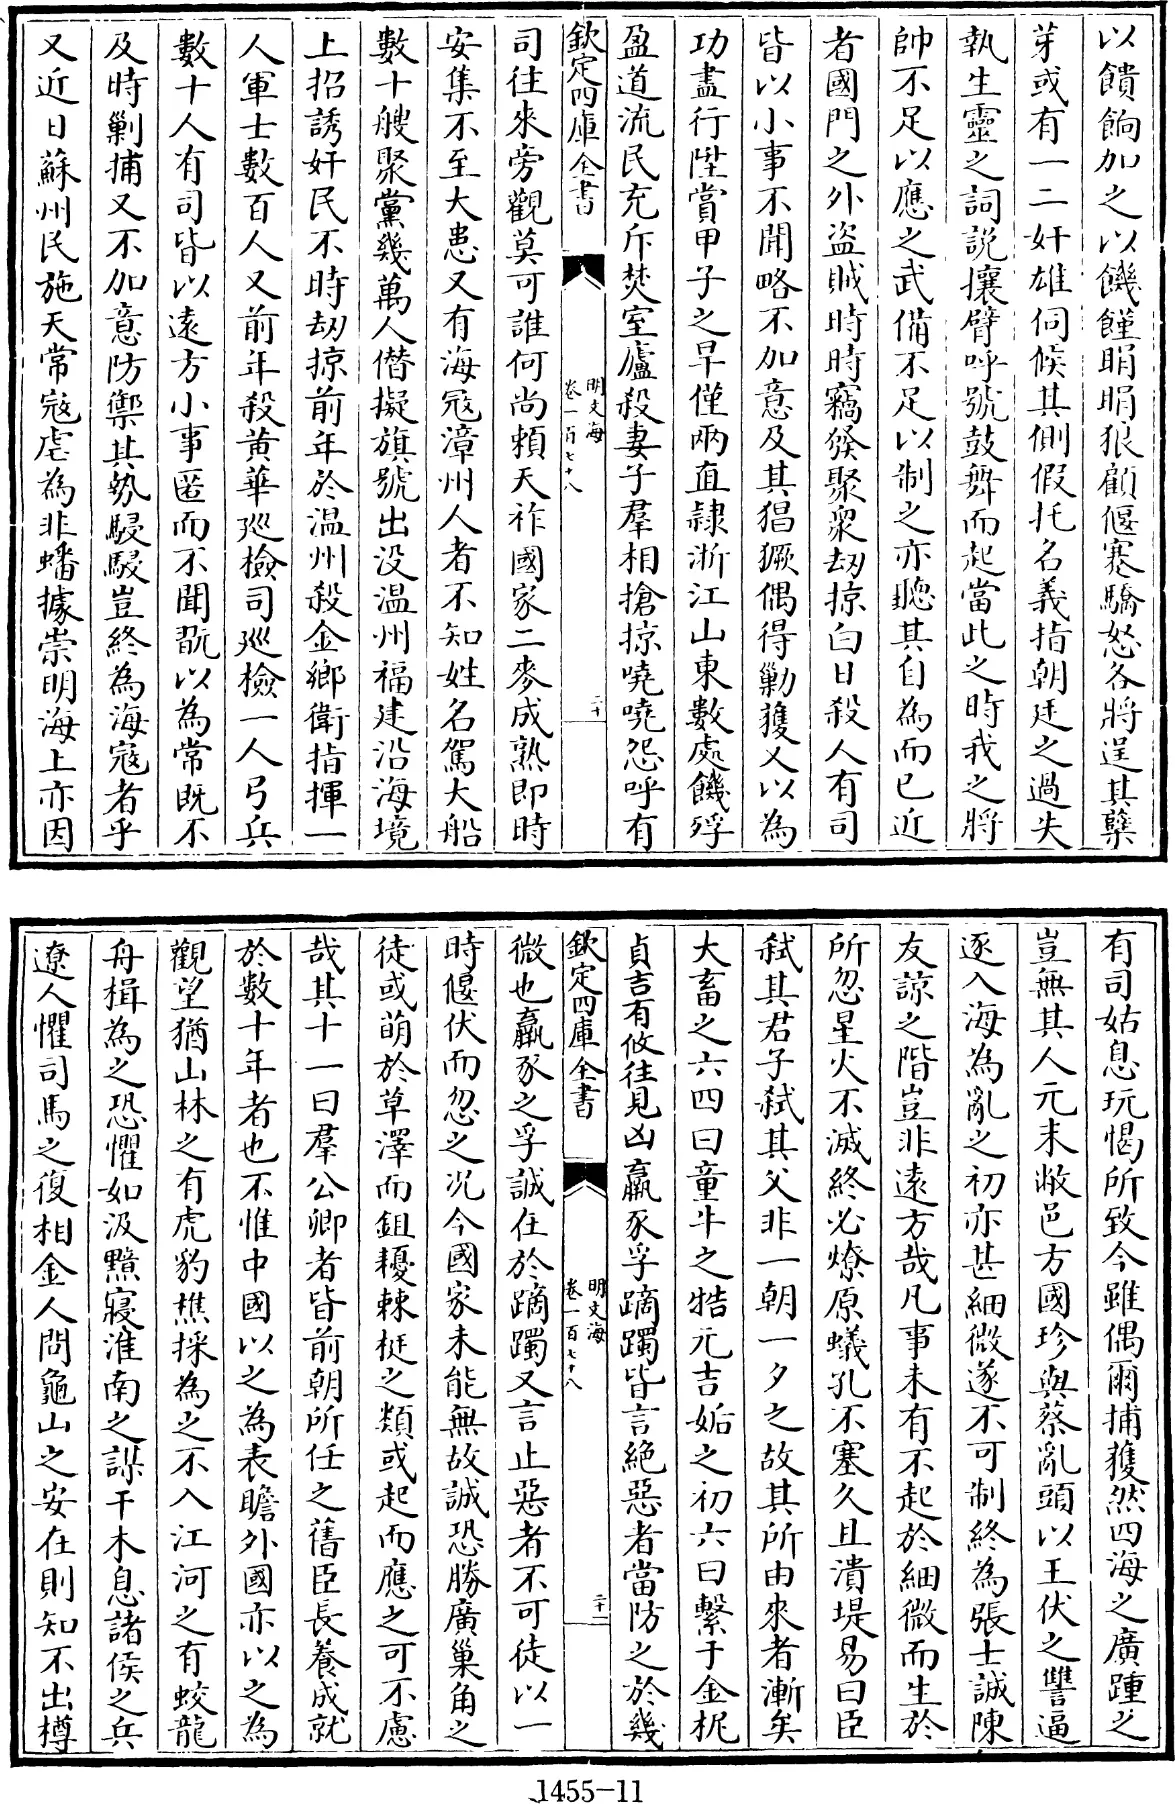 以饋餉加之以饑饉睊睊狼顧偃蹇驕怒各將逞其櫱
芽或有一二奸雄伺候其側假托名義指朝廷之過失
執生靈之詞說攘臂呼號鼓舞而起當此之時我之將
帥不足以應之武備不足以制之亦聽其自為而已近
者國門之外盜賊時時竊發聚衆刼掠白日殺人有司
皆以小事不聞略不加意及其猖獗偶得勦獲又以為
功盡行陞賞甲子之旱僅兩直隷浙江山東數處饑殍
盈道流民充斥焚室廬殺妻子羣相搶掠嘵嘵怨呼有
欽定四庫全書
明文海
卷一百七十八
二十
司往來旁觀莫可誰何尚賴天祚國家二麥成熟即時
安集不至大患又有海冦漳州人者不知姓名駕大船
數十艘聚黨幾萬人僣擬旗號出没温州福建沿海境
上招誘奸民不時刼掠前年於温州殺金鄉衛指揮一
人軍士數百人又前年殺黄華廵檢司廵檢一人弓兵
數十人有司皆以遠方小事匿而不聞翫以為常既不
及時剿捕又不加意防禦其勢駸駸豈終為海寇者乎
又近日蘇州民施天常寇虐為非蟠據崇明海上亦因
有司姑息玩愒所致今雖偶爾捕獲然四海之廣踵之
豈無其人元末敝邑方國珍與蔡亂頭以王伏之讐逼
逐入海為亂之初亦甚細微遂不可制終為張士誠陳
友諒之階豈非遠方哉凡事未有不起於細微而生於
所忽星火不滅終必燎原蟻孔不塞久且潰堤易曰臣
弑其君子弑其父非一朝一夕之故其所由來者漸矣
大畜之六四曰童牛之牿元吉姤之初六曰繫于金柅
貞吉有攸往見凶羸豕孚蹢躅皆言絶惡者當防之於幾
欽定四庫全書
明文海
卷一百七十八
二十一
微也羸豕之孚誠在於蹢躅又言止惡者不可徒以一
時偃伏而忽之况今國家未能無故誠恐勝廣巢角之
徒或萌於草澤而鉏耰棘梃之類或起而應之可不慮
哉其十一曰羣公卿者皆前朝所任之舊臣長養成就
於數十年者也不惟中國以之為表瞻外國亦以之為
觀望猶山林之有虎豹樵採為之不入江河之有蛟龍
舟楫為之恐懼如汲黯寢淮南之謀干木息諸侯之兵
遼人懼司馬之復相金人問龜山之安在則知不出樽
1455-11